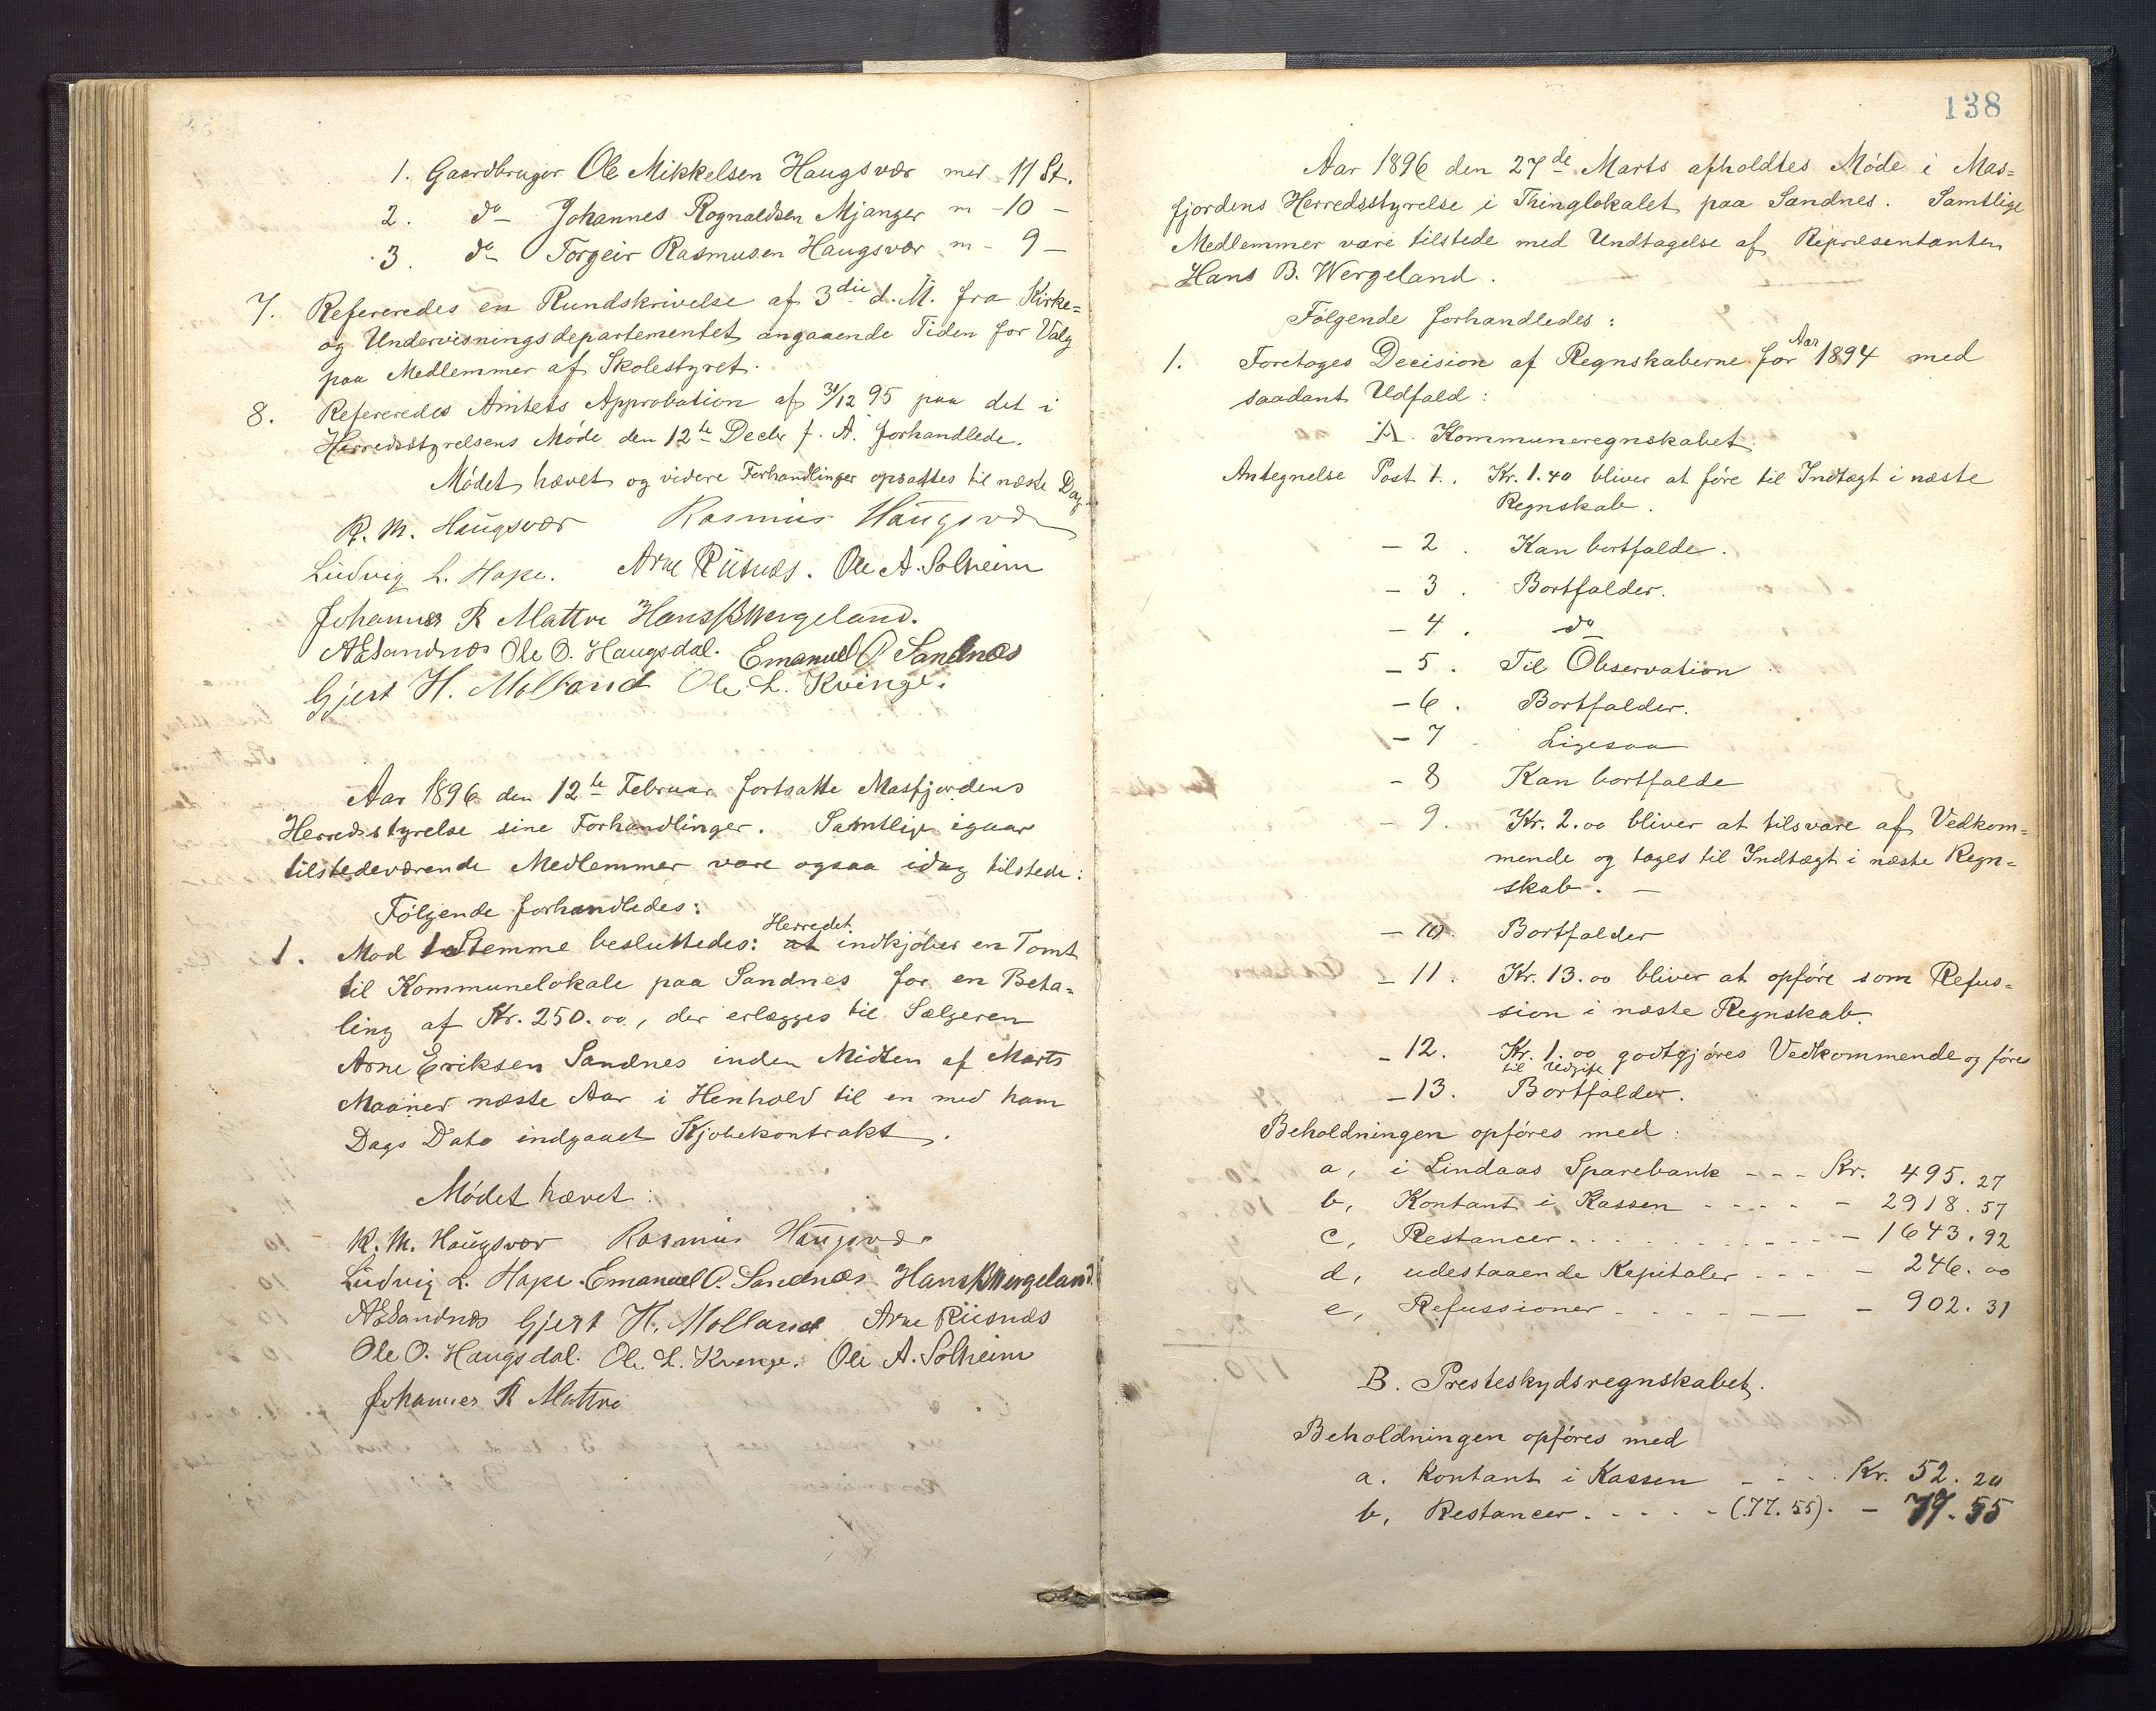 1. Gaardbruger Ole Mikkelsen Haugsvær med 11 St.
2. do Johannes Rognaldsen Mjanger m - 10 -
3. do Torgeir Rasmusen Haugsvær m - 9 -
7. Refereredes en Rundskrivelse af 3die d. M. fra Kirke=
og Undervisningsdepartementet angaaende Tiden for Valg
paa Medlemmer af Skolestyret.
8. Refereredes Amtets Approbation af 31/12 95 paa det i
Herredsstyrelsens Møde den 12te Decbr f. A. forhandlede.
Mødet hævet og videre Forhandlinger opsattes til næste Dag
R. M. Haugsvær Rasmus Haugsvær
Ludvig L. Hope. Arne Riisnæs. Ole A. Solheim
Johannes R Mattre Hans B Wergeland.
A E Sandnæs Ole O. Haugsdal. Emanuel O Sandnæs
Gjert H. Molland Ole L. Kvinge.
Aar 1896 den 12te Februar fortsatte Masfjordens
Herredsstyrelse sine Forhandlinger. Samtlige igaar
tilstedeværende Medlemmer vare ogsaa idag tilstede:
Følgende forhandledes:
Herredet
1. Mod 1 Stemme besluttedes: at indkjøber en Tomt
til Kommunelokale paa Sandnes for en Beta=
ling af Kr. 250.00, der erlægges til Sælgeren
Arne Eriksen Sandnes inden Midten af Marts
Maaned næste Aar i Henhold til en med ham
Dags Dato indgaaet Kjøbekontrakt.
Mødet hævet:
R. M. Haugsvær Rasmus Haugsvær
Ludvig L. Hope. Emanuel O. Sandnæs Hans B Wergeland.
A E Sandnæs Gjert H. Molland Arne Riisnæs
Ole O. Haugsdal. Ole L. Kvinge. Ole A. Solheim
Johannes R Mattre
138
Aar 1896 den 27de Marts afholdtes Møde i Mas=
fjordens Herredsstyrelse i Thinglokalet paa Sandnes. Samtlige
Medlemmer vare tilstede med Undtagelse af Repræsentanten
Hans B. Wergeland.
Følgende forhandledes:
1. Foretoges Decision af Regnskaberne for Aar 1894 med
saadant Udfald:
A. Kommuneregnskabet.
Antegnelse Post 1. Kr. 1.40 bliver at føre til Indtægt i næste
Regnskab.
- 2. Kan bortfalde.
- 3. Bortfalder.
- 4. do
- 5. Til Observation
- 6. Bortfalder.
- 7 Ligesaa
- 8 Kan bortfalde
- 9. Kr. 2.00 bliver at tilsvare af Vedkom=
mende og tages til Indtægt i næste Regn=
skab. -
- 10. Bortfalder
- 11. Kr. 13.00 bliver at opføre som Refus=
sion i næste Regnskab.
- 12. Kr. 1.00 godtgjøres Vedkommende og føres
til Udgift
- 13. Bortfalder.
Beholdningen opføres med:
a, i Lindaas Sparebank - - - Kr. 495.27
b, Kontant i Kassen - - - - - 2918.57
c, Restancer. . . . . - - - - 1643.92
d, udestaaende Kapitaler - - - - 246.00
e, Refussioner - - - - - - - 902.31
B. Presteskydsregnskabet.
Beholdningen opføres med
a. Kontant i Kassen - - - . Kr. 52.20
b, Restancer. - - - - (77.55). - 77.55